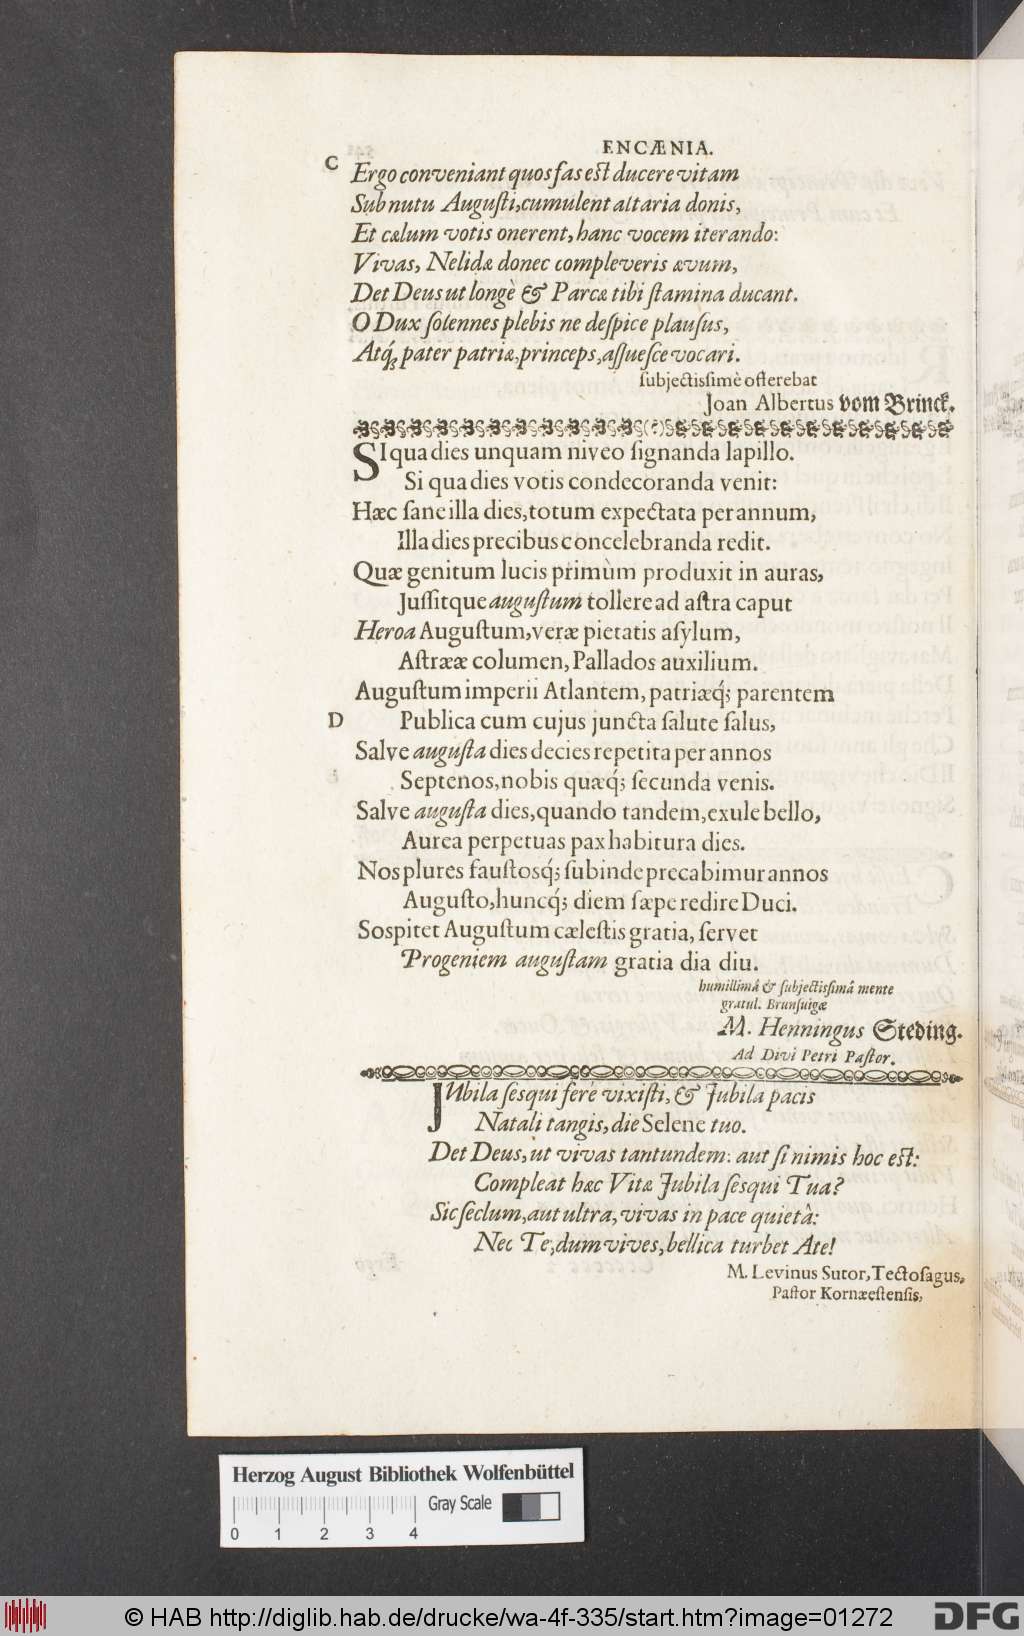 ENCÆNIA.
C
Ergo conveniant quos fas est ducere vitam
Sub nutu Augusti, cumulent altaria donis,
Et cælum votis onerent, hanc vocem iterando:
Vivas, Nelidæ donec compleveris ævum,
Det Deus ut longè & Parcæ tibi stamina ducant.
O Dux solennes plebis ne despice plausus,
Atq́; pater patriæ, princeps, assuesce vocari.
subjectissimè offerebat
Joan Albertus vom Brinck.
SI qua dies unquam niveo signanda lapillo.
Si qua dies votis condecoranda venit:
Hæc sane illa dies, totum expectata per annum,
Illa dies precibus concelebranda redit.
Quæ genitum lucis primùm produxit in auras,
Jussitque augustum tollere ad astra caput
Heroa Augustum, veræ pietatis asylum,
Astrææ columen, Pallados auxilium.
Augustum imperii Atlantem, patriæq́; parentem
D
Publica cum cujus juncta salute salus,
Salve augusta dies decies repetita per annos
Septenos, nobis quæq́; secunda venis.
Salve augusta dies, quando tandem, exule bello,
Aurea perpetuas pax habitura dies.
Nos plures faustosq́; subinde precabimur annos
Augusto, huncq́; diem sæpe redire Duci.
Sospitet Augustum cælestis gratia, servet
Progeniem augustam gratia dia diu.
humillimâ & subjectissimâ mente
gratul. Brunsuigæ
M. Henningus Steding.
Ad Divi Petri Pastor.
JUbila sesqui ferè vixisti, & Jubila pacis
Natali tangis, die Selene tuo.
Det Deus, ut vivas tantundem: aut si nimis hoc est:
Compleat hæc Vitæ Jubila sesqui Tua?
Sic seclum, aut ultra, vivas in pace quietâ:
Nec Te, dum vives, bellica turbet Ate!
M. Levinus Sutor, Tectosagus,
Pastor Kornæestensis,
Herzog August Bibliothek Wolfenbüttel
Gray Scale
0 1 2 3 4
© HAB http://diglib.hab.de/drucke/wa-4f-335/start.htm?image=01272
DFG